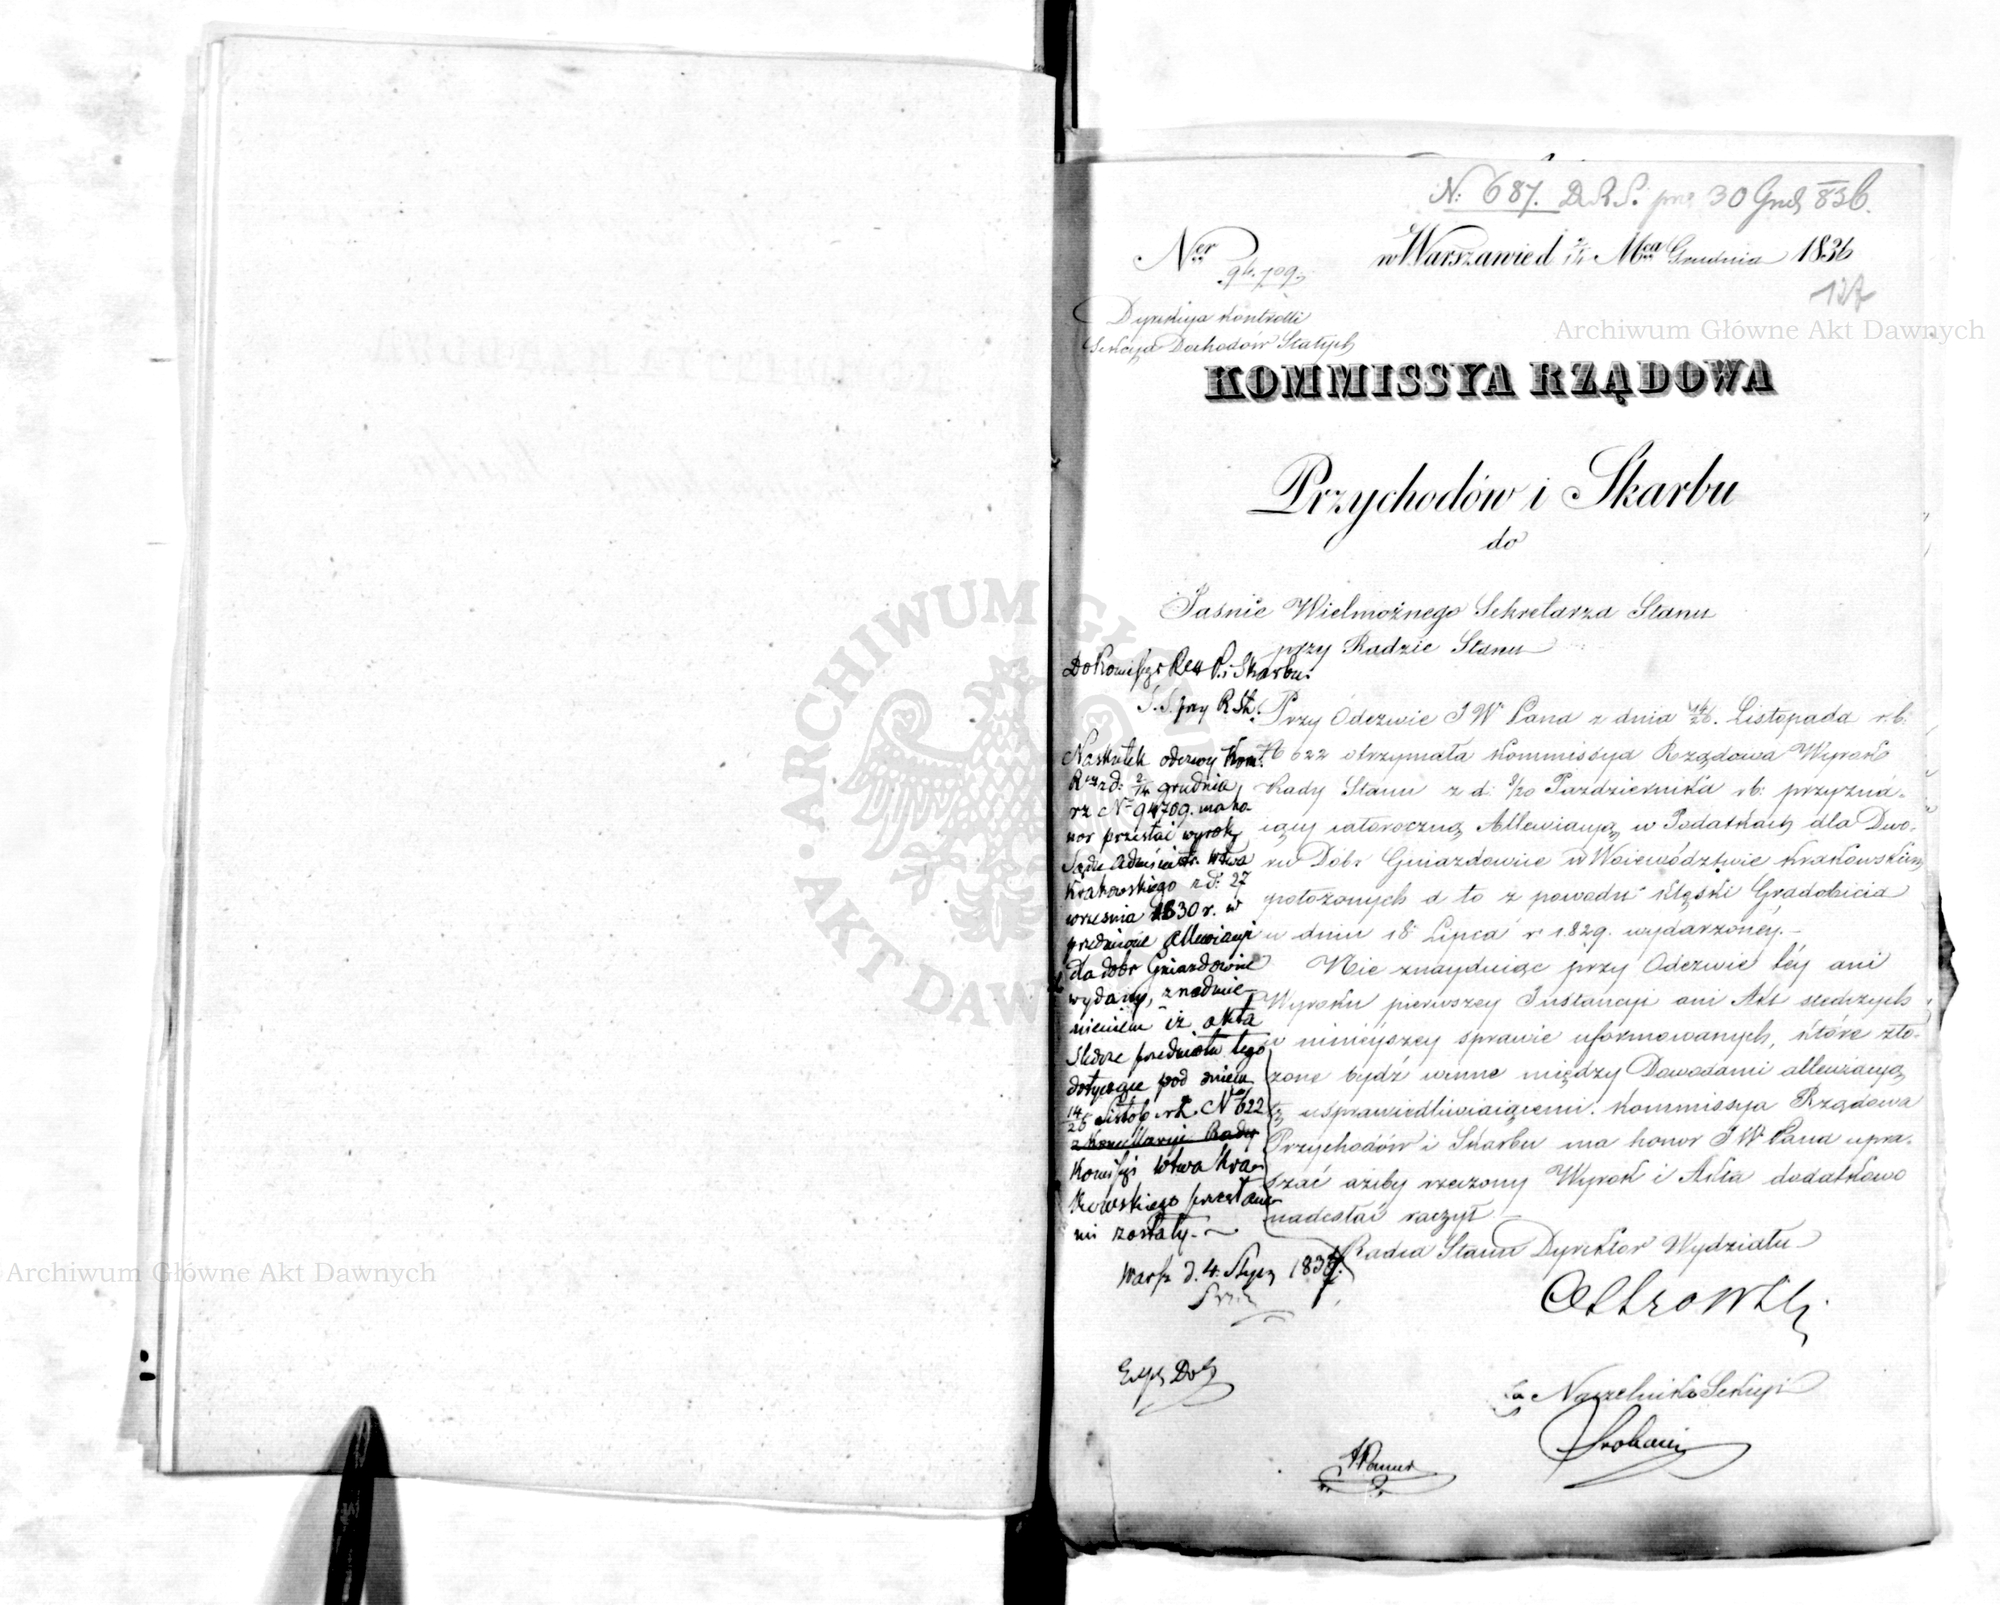 N: 687. D.R.S. prez 30 Grud 836.
Ner 94,709. w Warszawie d 2/14 Mca Grudnia 1836
127
Dyrekcya Kontrolli
Sekcya Dochodów Stałych
KOMMISSYA RZĄDOWA
Przychodów i Skarbu
do
Jaśnie Wielmożnego Sekretarza Stanu
przy Radzie Stanu
Przy Odezwie JW Pana z dnia 14/26. Listopada r.b.
N 622 otrzymała Kommissya Rządowa Wyrok
Rady Stanu z d. 8/20 Października rb. przyzna-
iący całoroczną Allewiacyą w Podatkach dla Dwo-
ru Dóbr Gniazdowice w Województwie Krakowskim
położonych a to z powodu klęski Gradobicia
w dniu 18 Lipca r. 1829. wydarzoney.-
Nie znayduiąc przy Odezwie tey ani
Wyroku pierwszey Instancyi ani Akt śledczych
w ninieyszey sprawie uformowanych, które zło-
zone bydź winne między Dowodami allewiacyą
tę usprawiedliwiaiącemi. Kommissya Rządowa
Przychodów i Skarbu ma honor JW Pana upra-
szać ażeby rzeczony Wyrok i Akta dodatkowo
nadesłać raczył
Radca Stanu Dyrektor Wydziału
za Naczelnika Sekcyi
Do Komissyi Rzą P. i Skarbu.
S. S. przy R. St.
Na skutek odezwy Kom.
Rząd: 2/14 grudnia
rz N 94709. ma ho-
nor przesłać wyrok
Sądu Administr. wtwa
Krakowskiego z d: 27
września 1830 r. w
przedmiocie allewiacyi
dla dóbr Gniazdowice
wydany, z nadmie-
nieniem iż akta
śledcze przedmiotu tego
dotyczące pod dniem
14/26 Listop. rb. N 622
z Kancellaryi Rady
Komissyi wtwa Kra-
kowskiego przesłane
mi zostały.-
Warsz d. 4. Stycz 1837.
Archiwum Główne Akt Dawnych
Archiwum Główne Akt Dawnych
ARCHIWUM GŁÓWNE AKT DAWNYCH